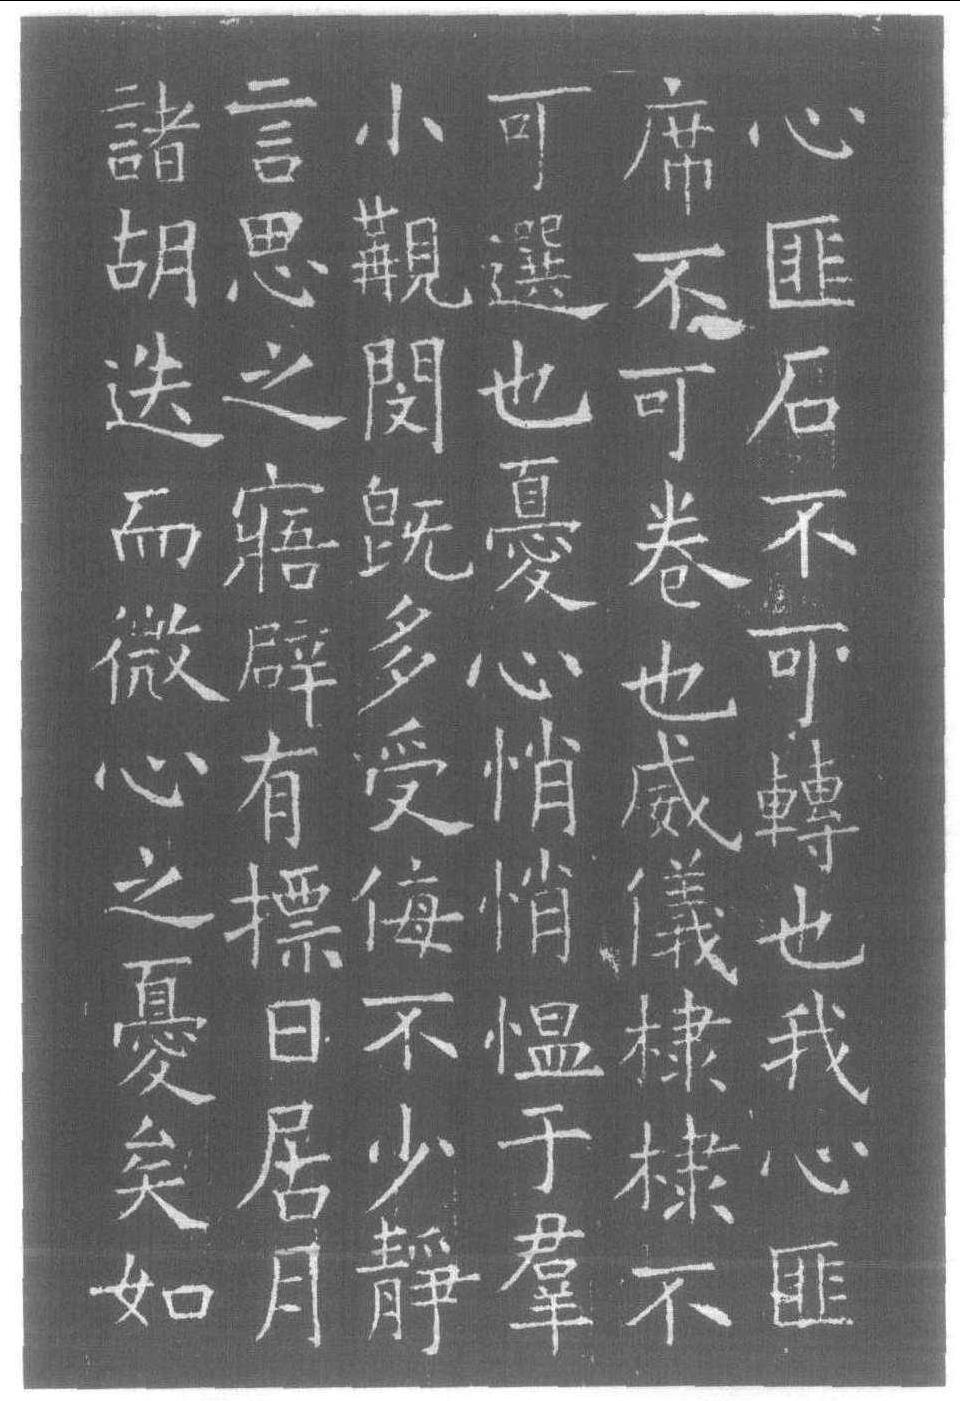 心匪石不可轉也我心匪
席不可卷也威儀棣棣不
可選也憂心悄悄愠于羣
小覯閔既多受侮不少靜
言思之寤辟有摽日居月
諸胡迭而微心之憂矣如